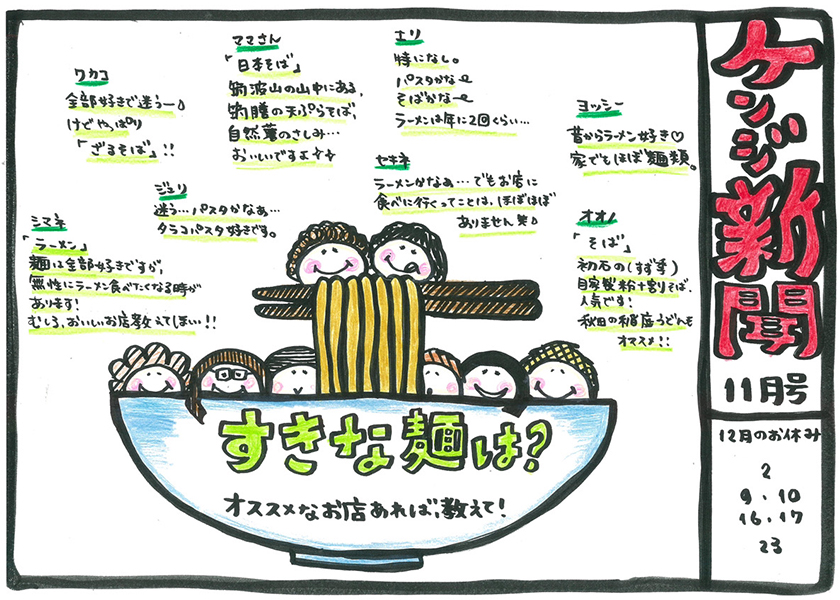 ケンジ新聞
11月号
12月のお休み
2
9・10
16・17
23
すきな麺は?
オススメなお店あれば、教えて!
ワカコ
全部好きで迷うー
けどやっぱり
「ざるそば」!!
ママさん
「日本そば」
筑波山の山中にある、
筑膳の天ぷらそば、
自然薯のさしみ…
おいしいですよ
エリ
特になし。
パスタかなー
そばかなー
ラーメンは年に2回くらい…
ヨッシー
昔からラーメン好き♡
家でもほぼ麺類。
ジュリ
迷う…パスタかなぁ…
タラコパスタ好きです。
セキネ
ラーメンかなぁ…でもお店に
食べに行くってことは、ほぼほぼ
ありません 笑
シマネ
「ラーメン」
麺は全部好きですが、
無性にラーメン食べたくなる時が
あります!
むしろ、おいしいお店教えてほしい!!
オオノ
「そば」
初石の(すず季)
自家製粉十割そば、
人気です!
秋田の稲庭うどんも
オススメ!!